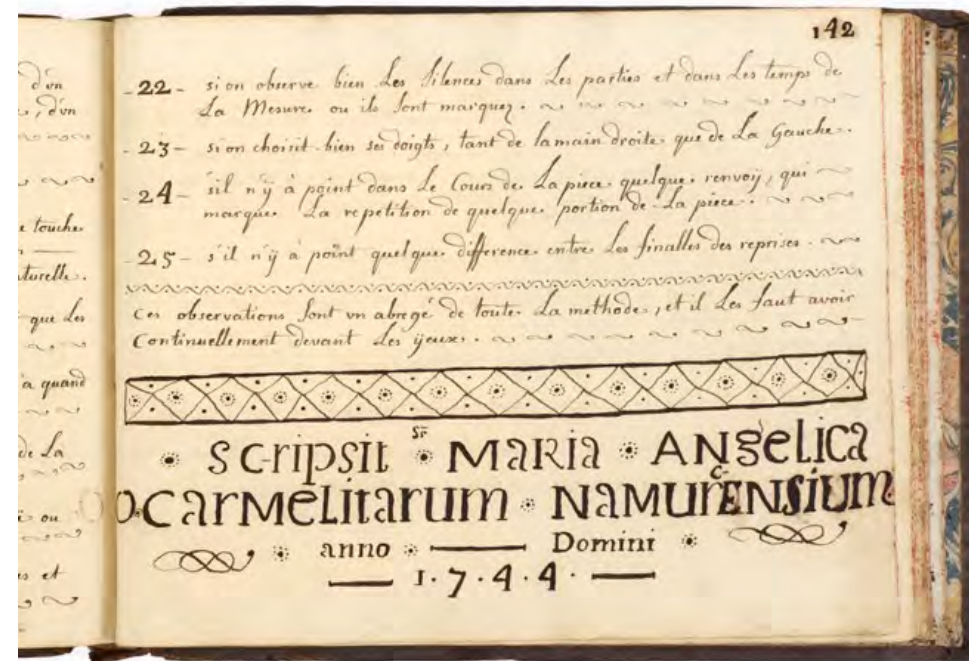 142
d'vn
, d'vn
e touche
turelle.
que Les
a quand
de La
ou
s et
- 22 - si on observe bien Les Silences dans Les parties et dans Les temps de
La Mesure ou ils Sont marquez.
- 23 - si on choisit bien ses doigts, tant de la main droite que de La Gauche.
- 24 - s'il n'ÿ à point dans Le Cours de La piece quelque renvoÿ, qui
marque La repetition de quelque portion de La piece.
- 25 - s'il n'ÿ à point quelque difference entre Les finalles des reprises.
Ces observations Sont vn abregé de toute La methode, et il Les faut avoir
Continuellement devant Les ÿeux.
Scripsit Sr MARia ANgelica
O.CarMelitarum NAMurcENSiUM
anno Domini
1.7.4.4.